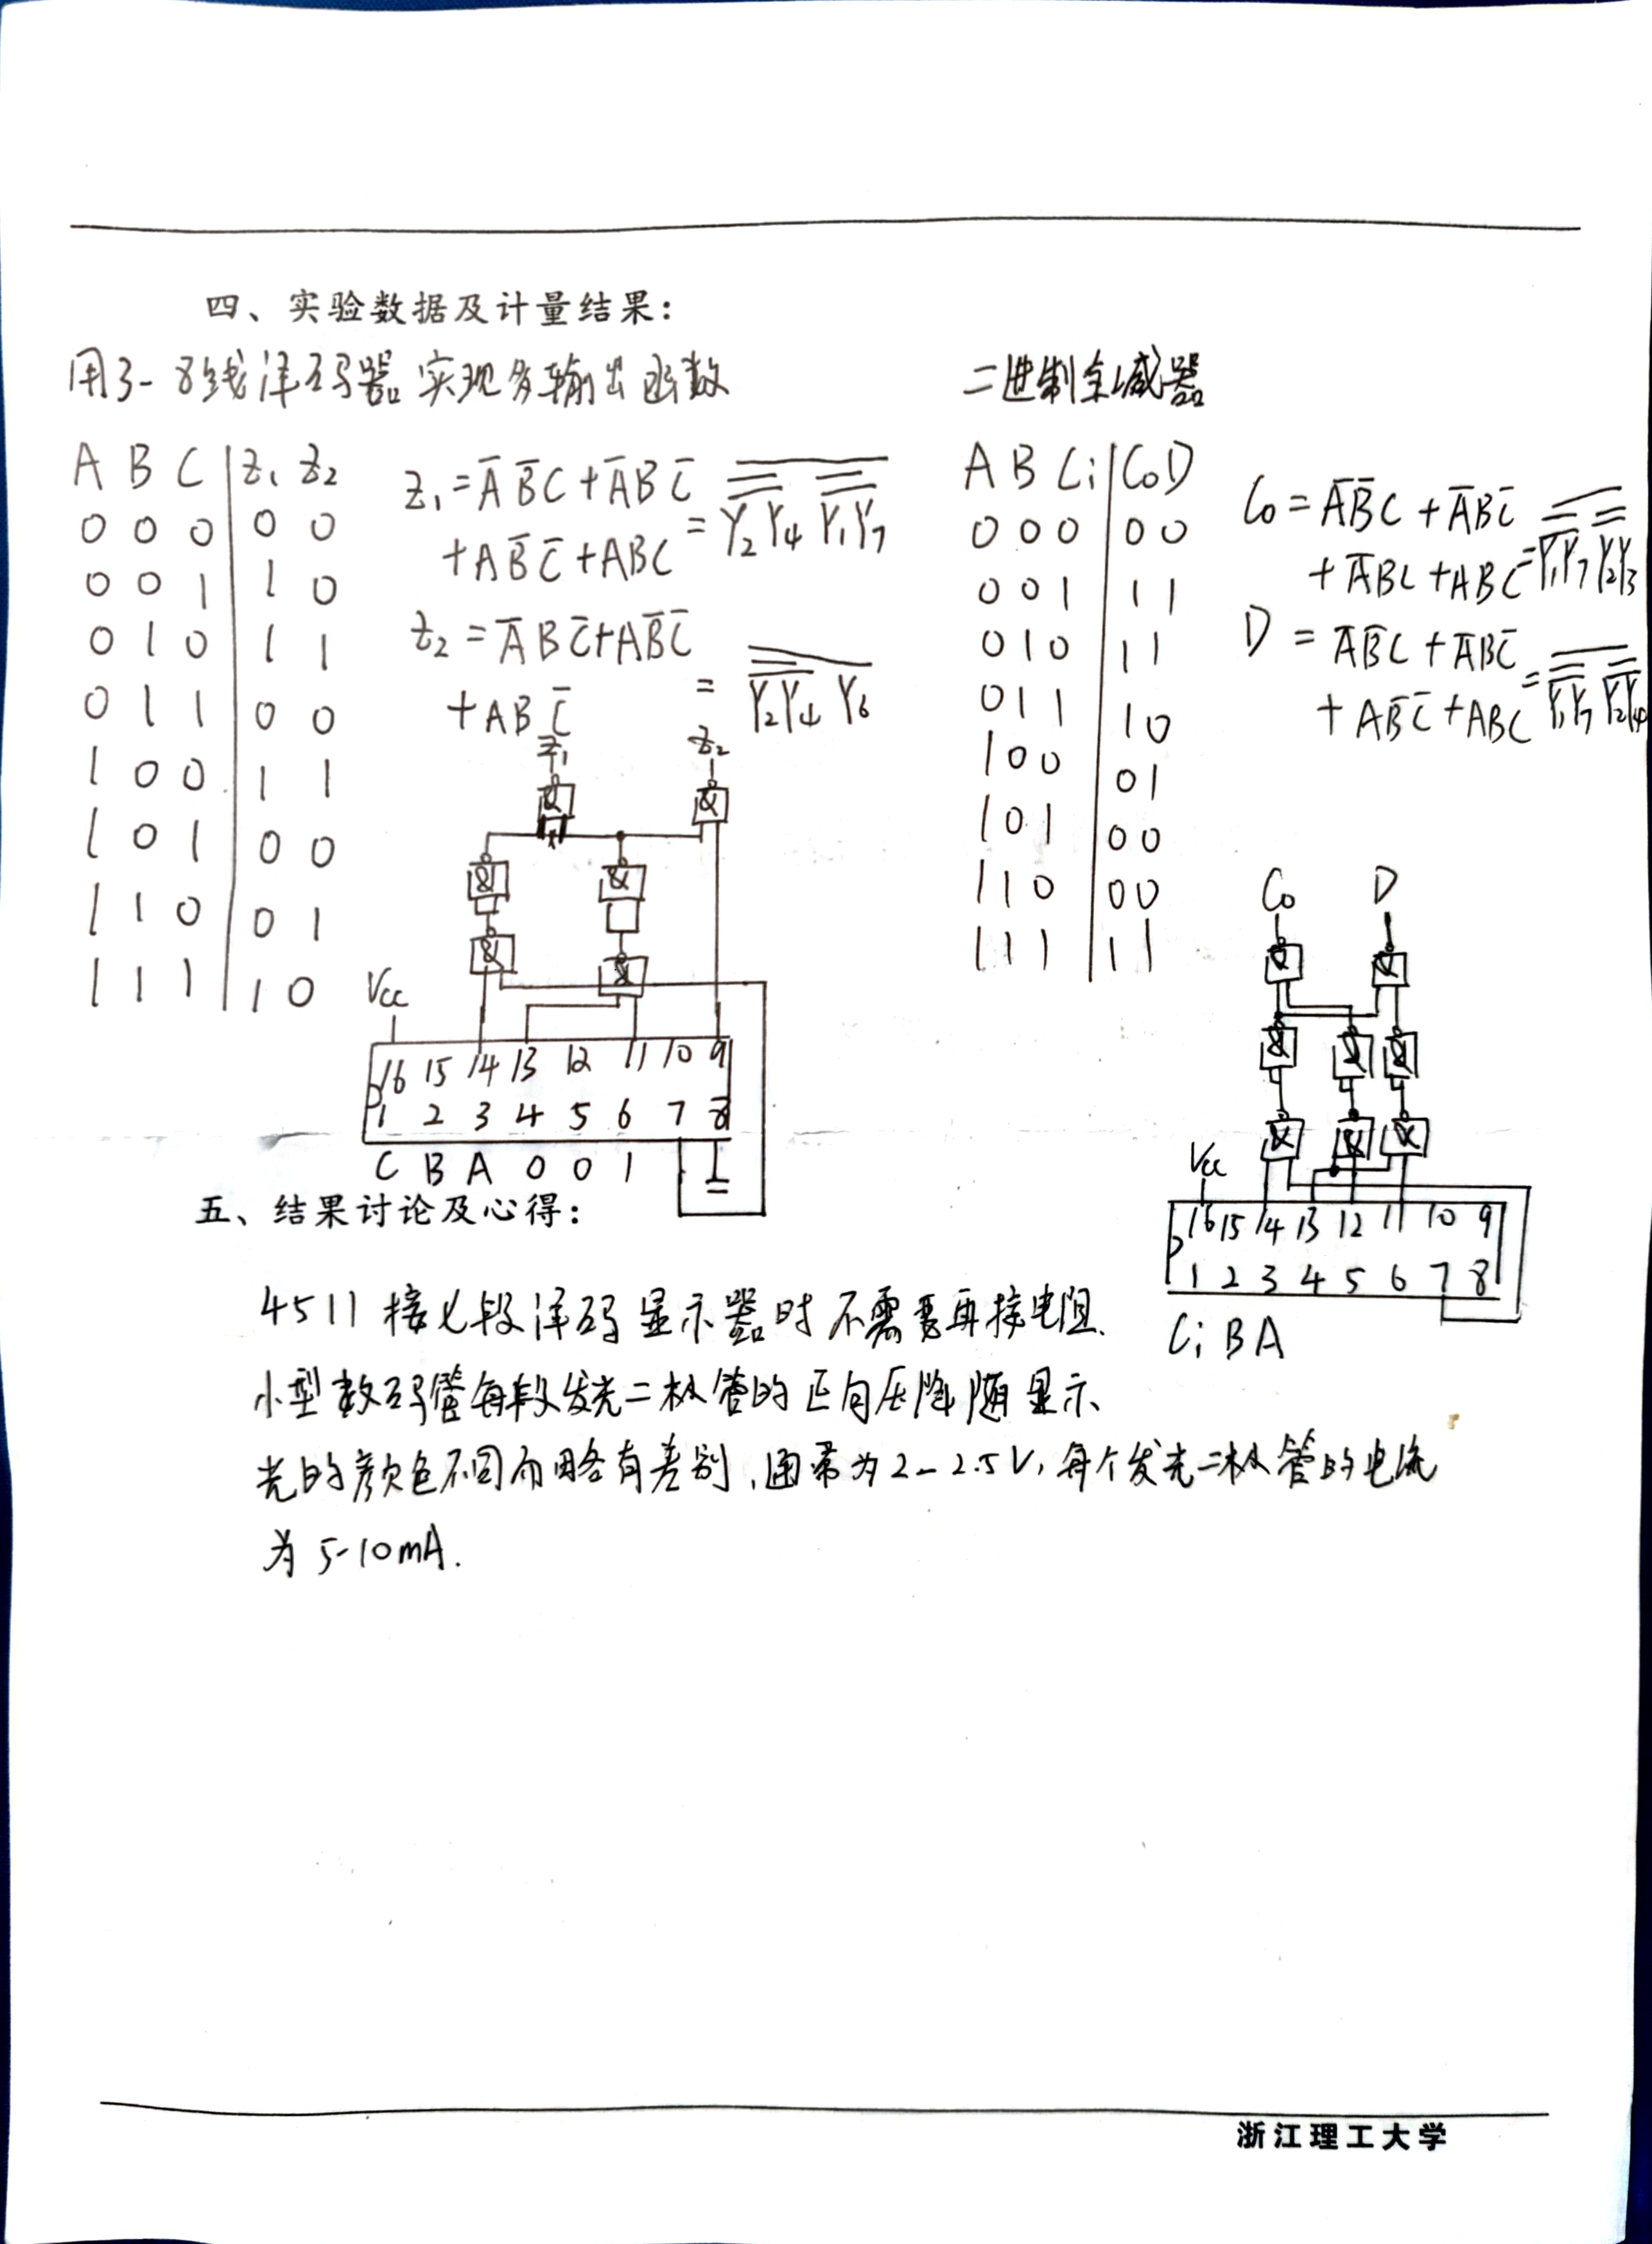 四、实验数据及计量结果：
用3-8线译码器实现多输出函数
A B C Z₁ Z₂
0 0 0 0 0
0 0 1 1 0
0 1 0 1 1
0 1 1 0 0
1 0 0 1 1
1 0 1 0 0
1 1 0 0 1
1 1 1 1 0
Z₁ = A̅ B̅ C + A̅ B C̅
+ A B̅ C̅ + ABC = Y₂Y₄ Y₁Y₇
Z₂ = A̅ B C̅ + A B̅ C̅
+ A B C̅ = Y₂Y₄ Y₆
Z₁ Z₂
& &
& &
& &
Vcc
16 15 14 13 12 11 10 9
1 2 3 4 5 6 7 8
C B A 0 0 1
二进制全减器
A B Ci C₀ D
0 0 0 0 0
0 0 1 1 1
0 1 0 1 1
0 1 1 1 0
1 0 0 0 1
1 0 1 0 0
1 1 0 0 0
1 1 1 1 1
C₀ = A̅ B̅ C + A̅ B C̅
+ A̅ B C + A B C = Y₁Y₇ Y₂Y₃
D = A̅ B̅ C + A̅ B C̅
+ A B̅ C̅ + ABC = Y₁Y₇ Y₂Y₄
C₀ D
& &
& & &
& & &
Vcc
16 15 14 13 12 11 10 9
1 2 3 4 5 6 7 8
Ci B A
五、结果讨论及心得：
4511接七段译码显示器时不需要再接电阻.
小型数码管每段发光二极管的正向压降随显示
光的颜色不同而略有差别,通常为2-2.5V,每个发光二极管的电流
为5-10mA.
浙江理工大学